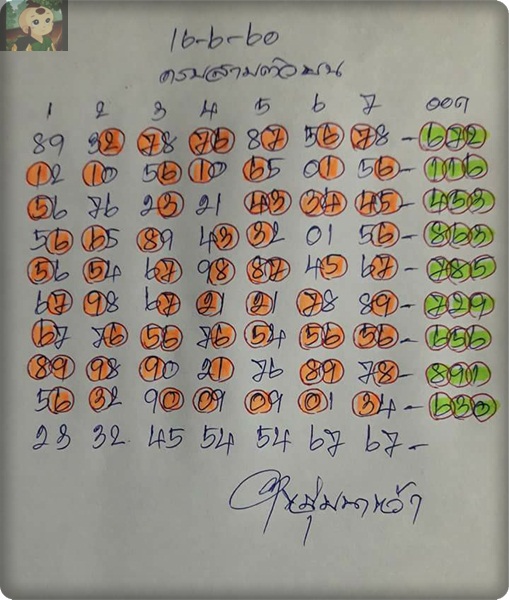 16-6-60
ครบสามตัวบน
1 2 3 4 5 6 7 ออก
89 32 78 76 87 56 78 - 672
12 10 56 10 65 01 56 - 116
56 76 23 21 43 34 45 - 453
56 65 89 43 32 01 56 - 863
56 54 67 98 87 45 67 - 785
67 98 67 21 21 78 89 - 729
67 76 56 76 54 56 56 - 656
89 98 90 21 76 89 78 - 891
56 32 90 09 09 01 34 - 630
23 32 45 54 54 67 67 -
หนุ่มนาหว้า